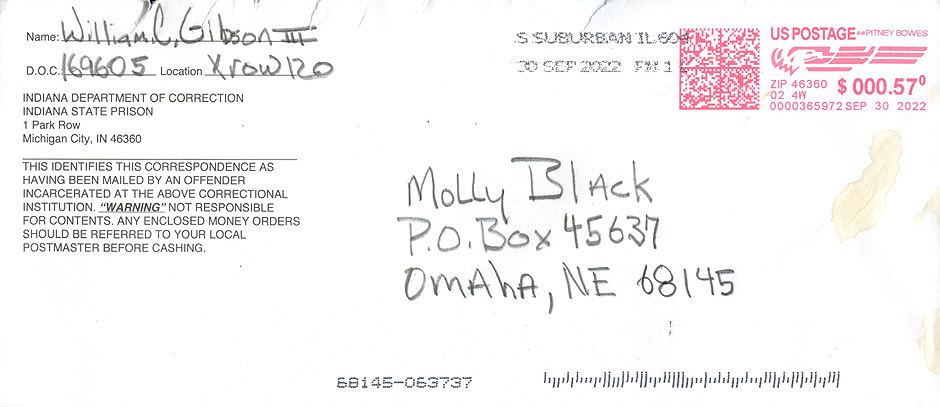 Name: William C, Gibson III
D.O.C. 169605 Location X row 120
INDIANA DEPARTMENT OF CORRECTION
INDIANA STATE PRISON
1 Park Row
Michigan City, IN 46360
THIS IDENTIFIES THIS CORRESPONDENCE AS
HAVING BEEN MAILED BY AN OFFENDER
INCARCERATED AT THE ABOVE CORRECTIONAL
INSTITUTION. "WARNING" NOT RESPONSIBLE
FOR CONTENTS. ANY ENCLOSED MONEY ORDERS
SHOULD BE REFERRED TO YOUR LOCAL
POSTMASTER BEFORE CASHING.
S SUBURBAN IL 604
30 SEP 2022 PM 1
US POSTAGE PITNEY BOWES
ZIP 46360 $ 000.57⁰
02 4W
0000365972 SEP 30 2022
Molly Black
P.O. Box 45637
Omaha, NE 68145
68145-063737